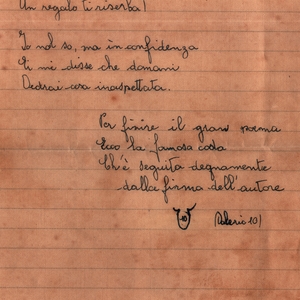 Un regalo ti riserba!
Io nol so, ma in confidenza
Ei mi disse che domani
Vedrai cosa inaspettata.
Per finire il gran poema
Ecco la famosa coda
Ch'è seguita degnamente
dalla firma dell'autore